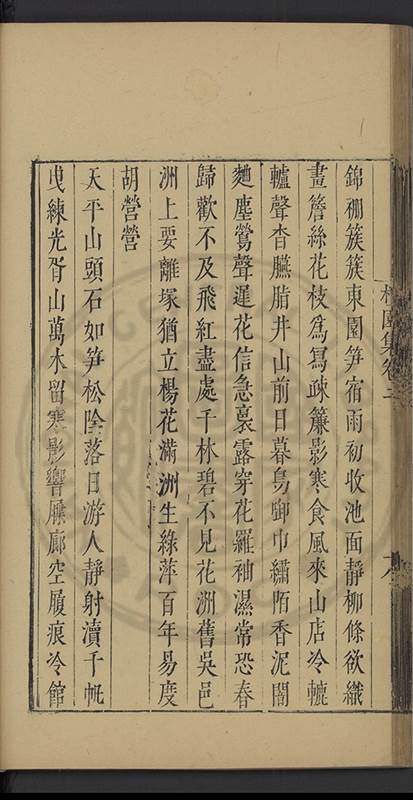 錦棚簇簇東園笋宿雨初收池面靜柳條欲織
晝簷絲花枝爲寫疎簾影寒食風來山店冷轆
轤聲杳臙脂井山前日暮鳥啣巾繡陌香泥闇
麴塵鶯聲遲花信急裛露穿花羅袖濕常恐春
歸歡不及飛紅盡處千林碧不見花洲舊吳邑
洲上要離塚猶立楊花滿洲生綠萍百年易度
胡營營
天平山頭石如笋松陰落日游人靜射瀆千帆
曳練光胥山萬木留寒影響屧廊空屐痕冷館
園集卷